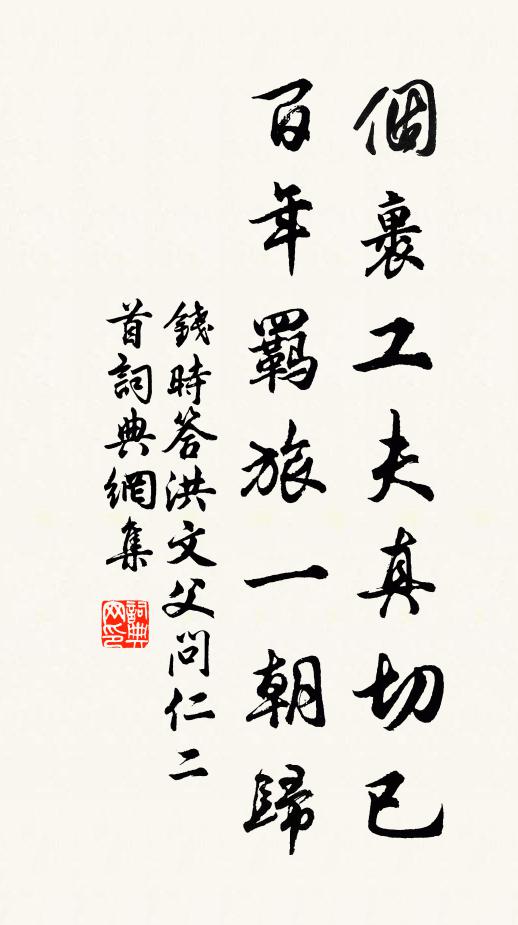 個裏工夫真切已
百年羈旅一朝歸
錢時答洪文父問仁二
首詞典網集
詞典网印